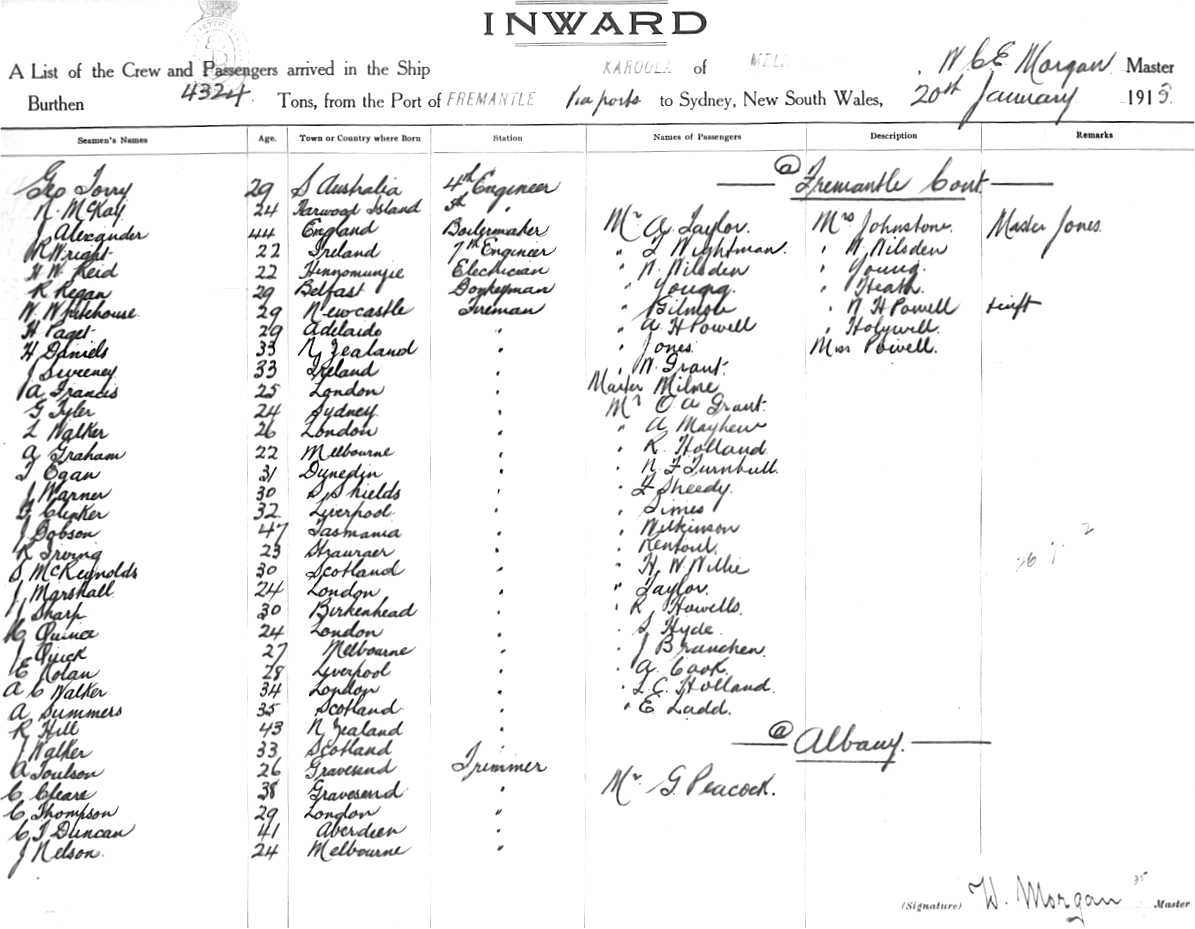 INWARD
A List of the Crew and Passengers arrived in the Ship KAROOLA of , W C E Morgan Master
Burthen 4324 Tons, from the Port of FREMANTLE Via ports to Sydney, New South Wales, 20th January 1915
Seamen's Names Age. Town or Country where Born Station Names of Passengers Description Remarks
Geo Torry 29 S Australia 4th Engineer @ Fremantle Cont
N. McKay 24 Harwood Island 5th "
J Alexander 44 England Boilermaker Mr A Taylor. Mrs Johnstone. Master Jones.
W Wright 22 Ireland 7th Engineer " F Wightman. " N. Nilsden
H W Reid 22 Hinnomunjie Electrician " N. Nilsden " Young.
R Regan 29 Belfast Donkeyman " Young " Heath.
W. Whitehouse 29 Newcastle Fireman " Gilmore " N H Powell
H Paget 29 Adelaide " " A H Powell " Holywell.
H Daniels 33 N Zealand " " Jones Miss Powell.
J Sweeney 33 Ireland " " W. Grant.
A Francis 25 London " Master Milne
G Tyler 24 Sydney " Mr O A Grant
L Walker 26 London " " A Mayhew
A Graham 22 Melbourne " " R Holland
T Egan 31 Dunedin " " N F Turnbull.
J Warner 30 S, Shields " " F Sheedy.
G Clinker 32 Liverpool " " Simes
J Dobson 47 Tasmania " " Wilkinson
R Irving 23 Stranraer " " Rentoul.
S McReynolds 30 Scotland " " H. W. Willie
J Marshall 24 London " " Taylor.
J Sharp 30 Birkenhead " " R Howells.
C Quince 24 London " " S Hyde.
J Quick 27 Melbourne " " J Branchen.
E Nolan 28 Liverpool " " A. Cook.
A C Walker 34 London " " T. C. Holland.
A Summers 35 Scotland " " E Ladd.
R Hill 43 N Zealand "
J Walker 33 Scotland " @ Albany.
A Toulson 26 Gravesend Trimmer
C Cleare 38 Gravesend " Mr G. Peacock.
C Thompson 29 London "
C T Duncan 41 Aberdeen "
J Nelson. 24 Melbourne "
(Signature) W. Morgan Master